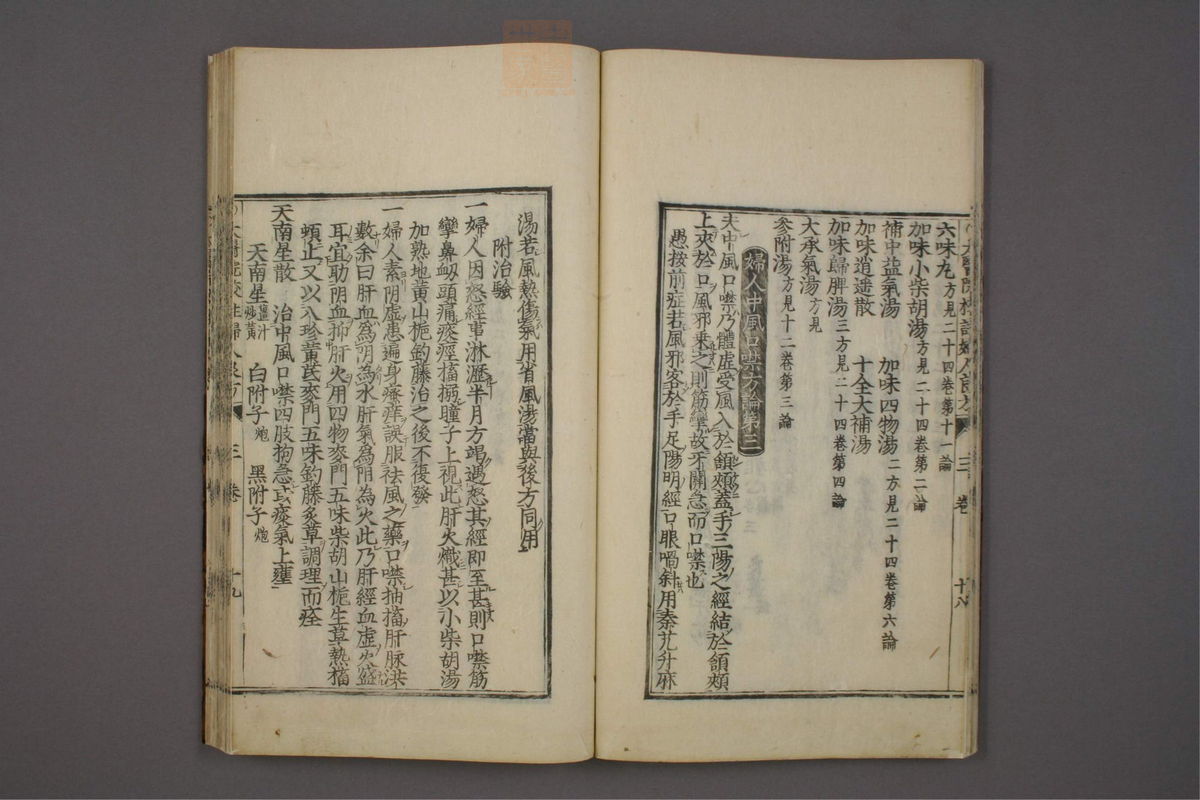 六味丸方見二十四卷第十一論
加味小柴胡湯方見二十四卷第二論
補中益氣湯　加味四物湯二方見二十四卷第六論
加味逍遙散　十全大補湯
加味歸脾湯三方見二十四卷第四論
大承氣湯方見
參附湯方見十二卷第三論
婦人中風口噤方論第三
夫中風口噤乃體虛受風入於頷頰蓋手三陽之經結於頷頰
上夾於口風邪乘之則筋攣故牙關急而口噤也
愚按前症若風邪客於手足陽明經口眼喎斜用秦艽升麻
三卷　十八
湯若風熱傷氣用省風湯當與後方同用
附治驗
一婦人因怒經事淋瀝半月方竭遇怒其經即至甚則口噤筋
攣鼻衂頭痛痰痙搐搦瞳子上視此肝火熾甚以小柴胡湯
加熟地黃山梔釣藤治之後不復發
一婦人素陰虛患遍身瘙痒誤服祛風之藥口噤抽搐肝脉洪
數余曰肝血為陰為水肝氣為陽為火此乃肝經血虛火盛
耳宜助陰血抑肝火用四物麥門五味柴胡山梔生草熱搐
頓止又以八珍黃芪麥門五味釣藤炙草調理而痊
天南星散　治中風口噤四肢拘急或痰氣上壅
天南星薑汁炒黃　白附子炮　黑附子炮
三卷　十九